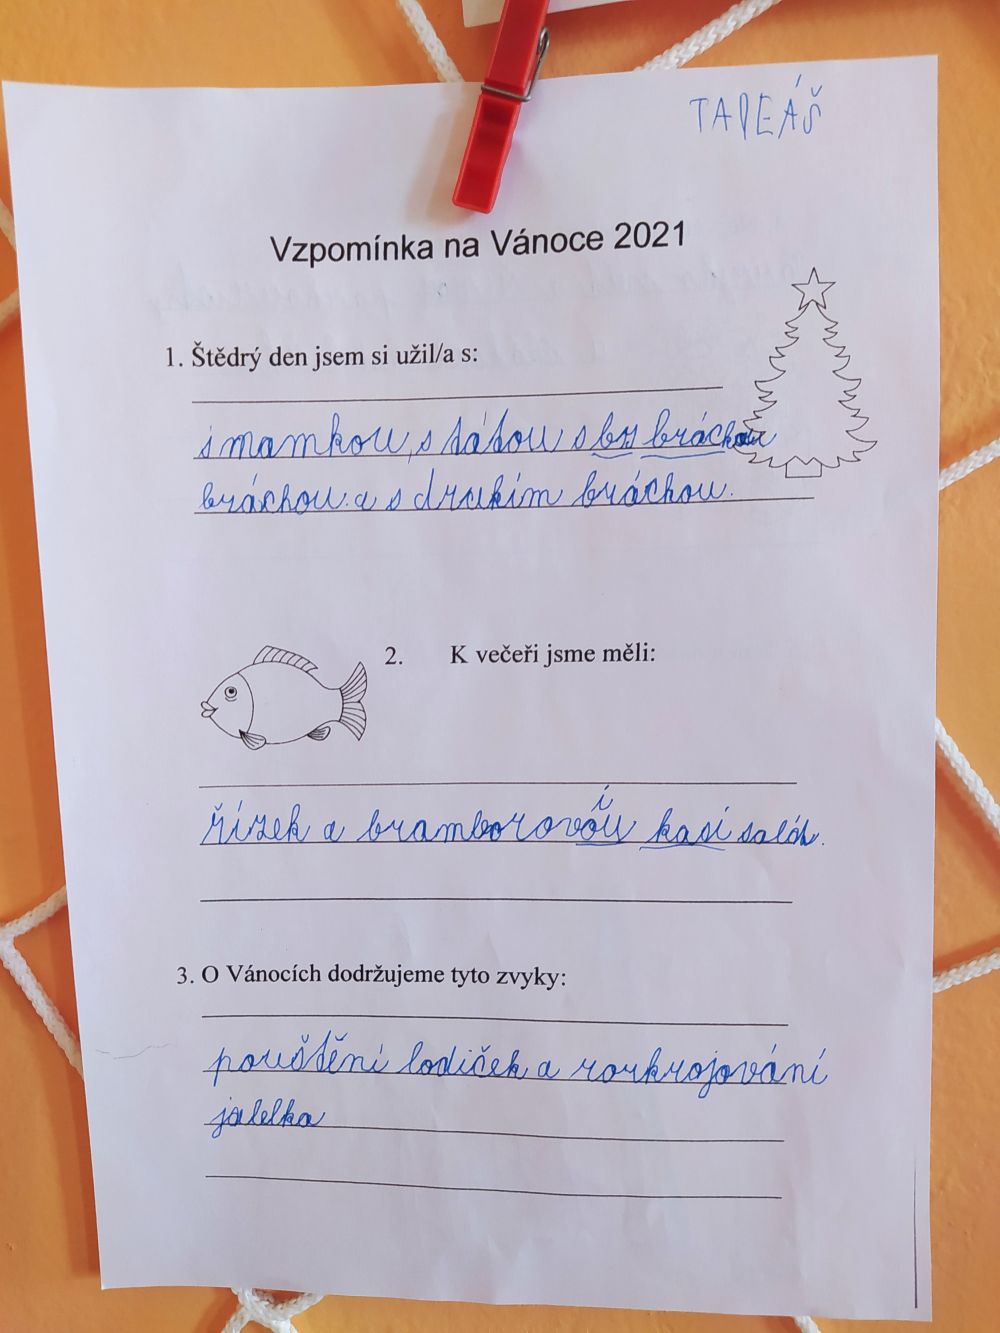 TADEÁŠ
Vzpomínka na Vánoce 2021
1. Štědrý den jsem si užil/a s:
s mamkou, s tátou s by bráchou
bráchou. a s drukím bráchou.
2. K večeři jsme měli:
řízek a bramborovoui kasi salát.
3. O Vánocích dodržujeme tyto zvyky:
pouštění lodiček a rozkrojování
jalelka